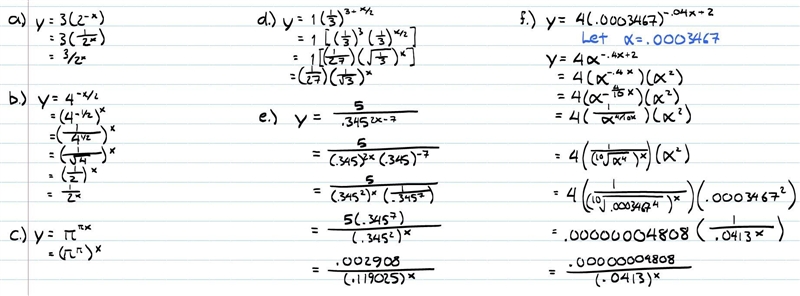 a.) y = 3(2^-x)
= 3(1/2^x)
= 3/2^x
b.) y = 4^-x/2
= (4^-1/2)^x
= (1/4^1/2)^x
= (1/√4)^x
= (1/2)^x
= 1/2^x
c.) y = π^πx
= (π^π)^x
d.) y = 1(1/3)^3+x/2
= 1[(1/3)^3 (1/3)^x/2]
= 1[(1/27)(√1/3)^x]
= (1/27)(1/√3)^x
e.) y = 5/.345^2x-7
= 5/(.345)^2x (.345)^-7
= 5/(.345^2)^x (1/.345^7)
= 5(.345^7)/(.345^2)^x
= .002908/(.119025)^x
f.) y = 4(.0003467)^-.04x+2
Let α = .0003467
y = 4α^-.4x+2
= 4(α^-.4x)(α^2)
= 4(α^-4/10 x)(α^2)
= 4(1/α^4/10x)(α^2)
= 4(1/(10√α^4)^x)(α^2)
= 4(1/(10√.0003467^4)^x)(.0003467^2)
= .00000004808(1/.0413^x)
= .00000004808/(.0413)^x